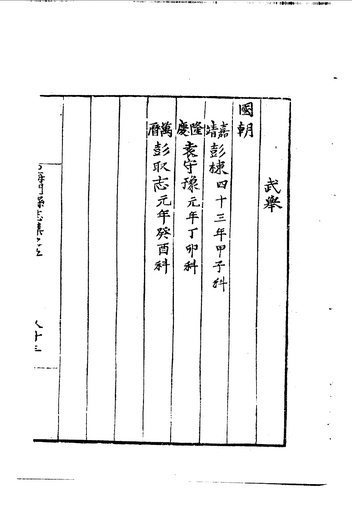 武舉
國朝
嘉靖彭棟四十三年甲子科
隆慶袁守豫元年丁卯科
萬曆彭取志元年癸酉科
海門縣志集之五